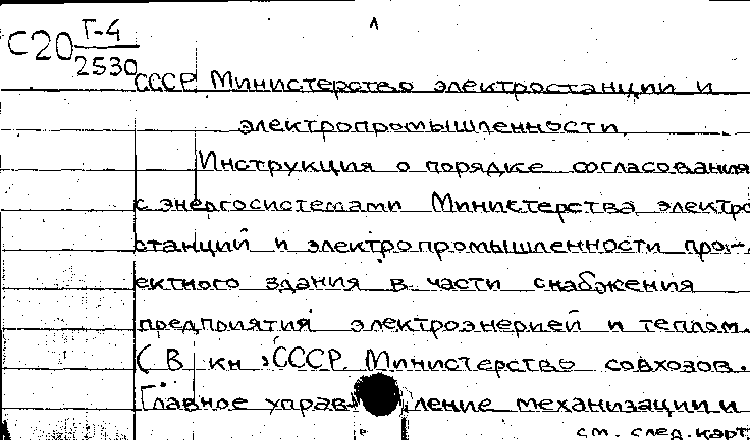 1
С20 Г-4
2530
СССР Министерство электростанции и
электропромышленности.
Инструкция о порядке согласования
с энергосистемами Министерства электро
станций и электропромышленности про-
ектного здания в части снабжения
предприятия электроэнерией и теплом.
( В кн: СССР. Министерство совхозов.
Главное управление механизации и
см. след. карт